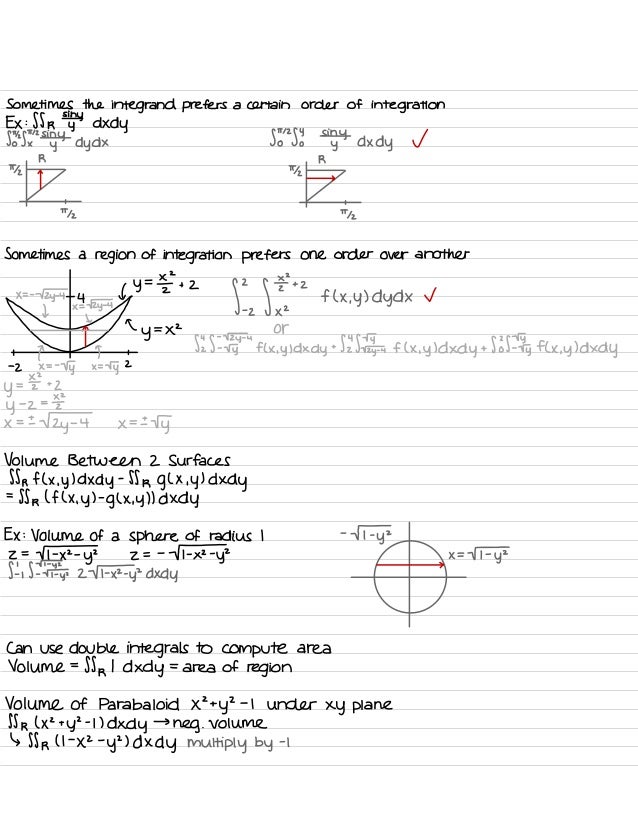 Sometimes the integrand prefers a certain order of integration
Ex: ∬R siny/y dxdy
∫₀^π/2 ∫ₓ^π/2 siny/y dydx
∫₀^π/2 ∫₀^y siny/y dxdy ✓
R
π/2
π/2
R
π/2
π/2
Sometimes a region of integration prefers one order over another
x=-√2y-4
4
x=√2y-4
y=x²/2+2
y=x²
-2
x=-√y
x=√y
2
∫₋₂² ∫ₓ²^(x²/2+2) f(x,y)dydx ✓
or
∫₂⁴ ∫₋√y^(-√2y-4) f(x,y)dxdy + ∫₂⁴ ∫√2y-4^√y f(x,y)dxdy + ∫₀² ∫₋√y^√y f(x,y)dxdy
y=x²/2+2
y-2=x²/2
x=±√2y-4 x=±√y
Volume Between 2 Surfaces
∬R f(x,y)dxdy-∬R g(x,y)dxdy
=∬R (f(x,y)-g(x,y))dxdy
Ex: Volume of a sphere of radius 1
z=√1-x²-y² z=-√1-x²-y²
∫₋₁¹ ∫₋√1-y²^√1-y² 2√1-x²-y² dxdy
-√1-y²
x=√1-y²
Can use double integrals to compute area
Volume = ∬R 1 dxdy = area of region
Volume of Parabaloid x²+y²-1 under xy plane
∬R (x²+y²-1)dxdy → neg. volume
↳ ∬R (1-x²-y²)dxdy multiply by -1